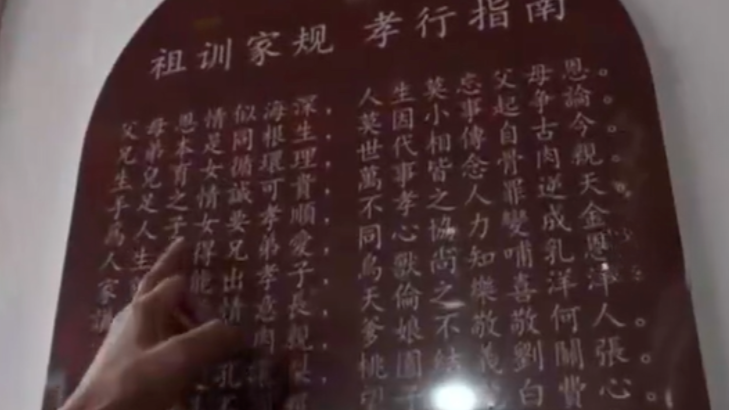 祖训家规 孝行指南
父母恩情似海深， 人生莫忘父母恩。
兄弟本是同根生， 莫因小事起争論。
生兄育女循環理， 世代相傳自古今。
手足之情誠可貴， 萬事皆念骨肉親。
為人子女要孝順， 不孝之人罪逆天。
人生得兄弟愛， 同心協力變成金。
家能出孝子， 鳥獸尚知哺乳恩。
情意長， 天倫之樂喜洋洋。
肉親， 爹娘不敬敬何人。
桃園結義劉關張。
子白費心。